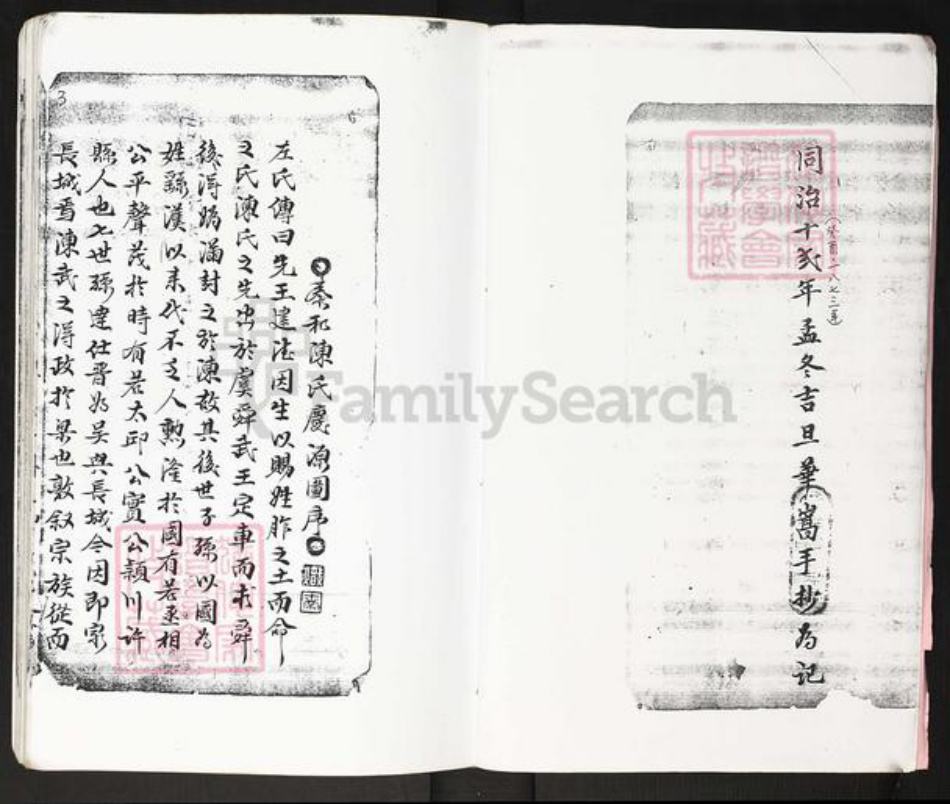 同治十弍年孟冬吉旦華嵩手抄為記
(癸酉一八七三年)
3
秦和陳氏慶源圖序
左氏傳曰先王建法因生以賜姓胙之土而命
之氏陳氏之先出於虞舜武王定車而求舜
後淂嬀滿封之於陳故其後世子孫以國為
姓繇漢以来代不乏人勲隆於國有若丞相
公平聲茂於時有若太邱公實公潁川許
縣人也七世孫逹仕晋為吴興長城令因即家
長城焉陳武之淂政於梁也敦叙宗族從而
FamilySearch